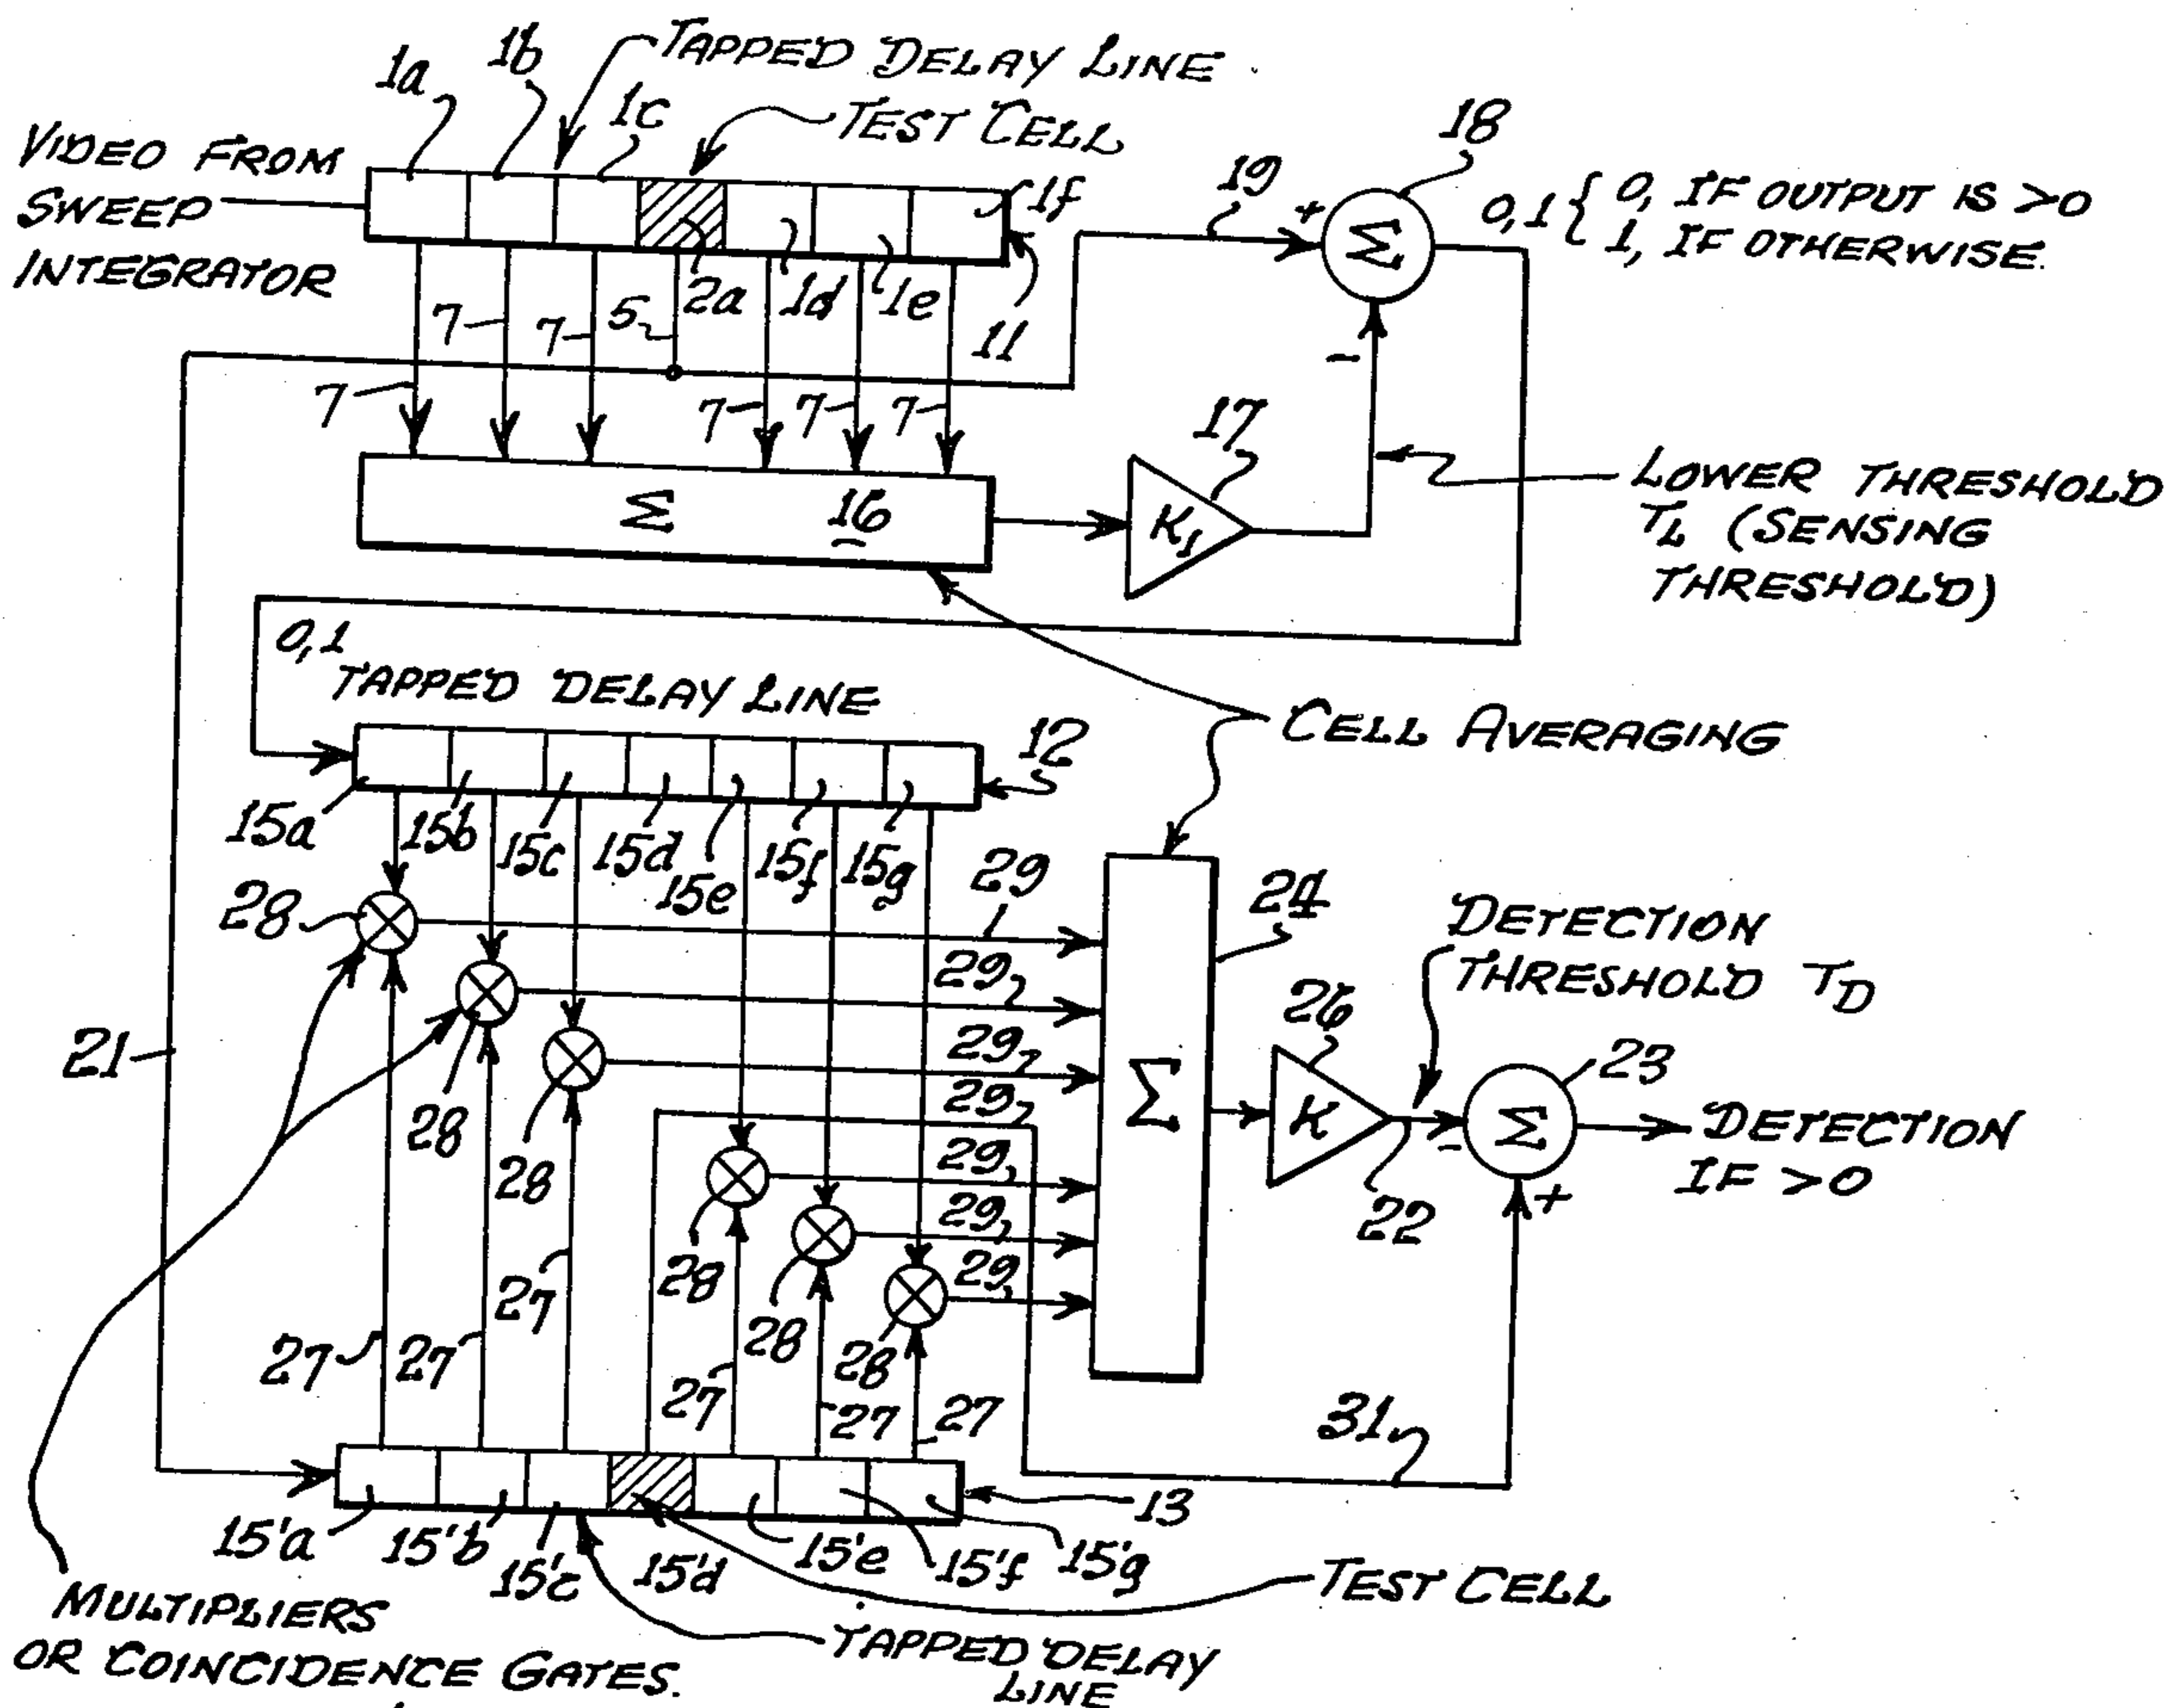 1a
1b
TAPPED DELAY LINE
1c
TEST CELL
VIDEO FROM
SWEEP
INTEGRATOR
1f
18
19
+
Σ
0,1 { 0, IF OUTPUT IS >0
1, IF OTHERWISE.
7
7
5
2a
1d
1e
11
-
7
7
7
7
17
Σ 16
K1
LOWER THRESHOLD
TL (SENSING
THRESHOLD)
0,1
TAPPED DELAY LINE
12
CELL AVERAGING
15a
15b
15c
15d
15e
15f
15g
29
24
28
29
DETECTION
THRESHOLD TD
26
21
29
23
28
29
Σ
K
-
Σ
DETECTION
IF >0
28
29
+
22
29
28
27
28
29
28
27
27
27
27
27
31
13
15'a
15'b
15'c
15'd
15'e
15'f
15'g
TEST CELL
MULTIPLIERS
OR COINCIDENCE GATES.
TAPPED DELAY
LINE